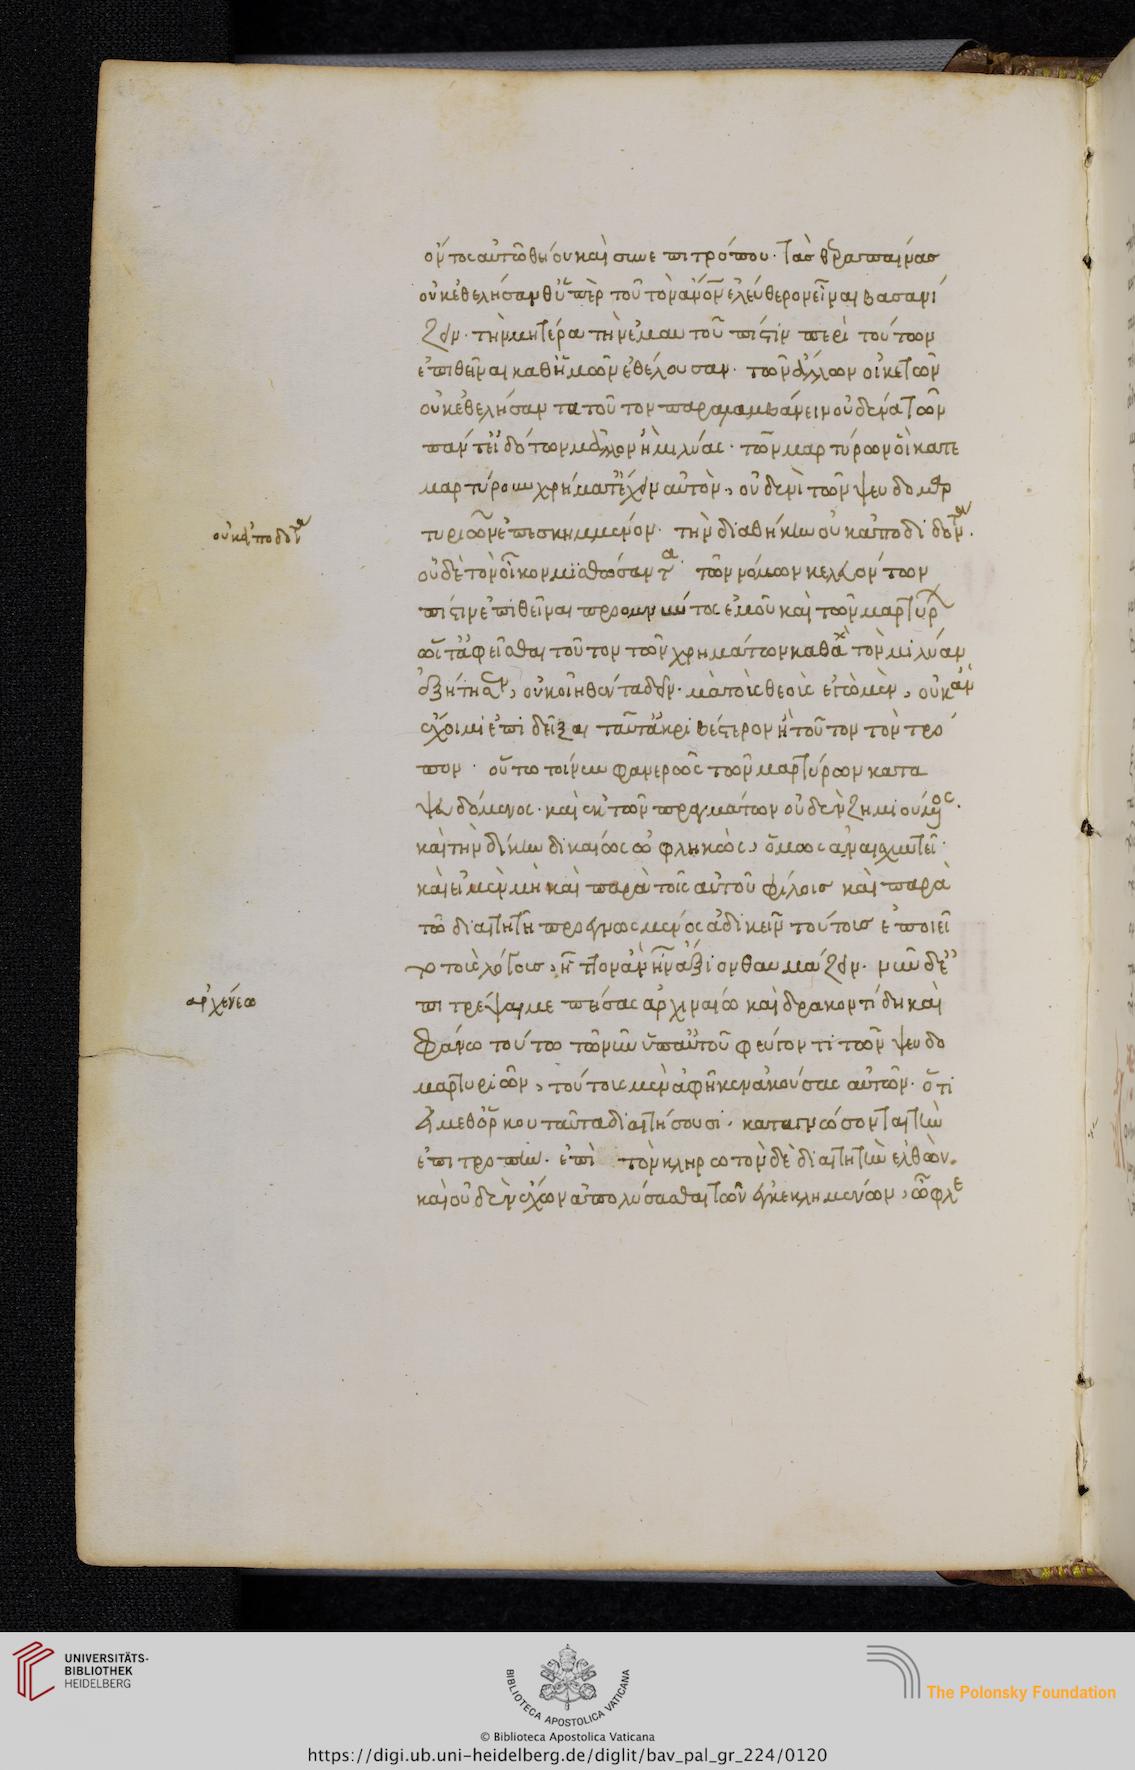 ὄντος αὐτῷ θείου καὶ συνεπιτρόπου· τὰς θεραπαίνας
οὐκ ἐθελήσανθ' ὑπὲρ τοῦ τὸν ἄνον ἐλεύθερον εἶναι βασανί
ζειν· τὴν μητέρα τὴν ἐμαυτοῦ πίστιν περὶ τούτων
ἐπιθεῖναι καθ' ἡμῶν ἐθέλουσαν· τῶν ἄλλων οἰκετῶν
οὐκ ἐθελήσαντα τοῦτον παραλαμβάνειν οὐδένα τῶν
πάντ' εἰδότων μᾶλλον ἢ μιλύας· τῶν μαρτύρων οἳ κατε
μαρτύρουν χρήματ' ἔχειν αὐτὸν, οὐδενὶ τῶν ψευδομαρ
τυριῶν ἐπεσκημμένον· τὴν διαθήκην οὐκ ἀποδιδόντα·
οὐκ ἀποδόντα
οὐδὲ τὸν οἶκον μισθώσαντα· τῶν νόμων κελευόντων
πίστιν ἐπιθεῖναι προομνύντος ἐμοῦ καὶ τῶν μαρτύρ
ὥστ' ἀφεῖσθαι τοῦτον τῶν χρημάτων καθ' ἃ τὸν μιλύαν
ἐξῄτησεν, οὐκ οἰηθέντα δεῖν· μὰ τοὺς θεοὺς ἐγὼ μὲν, οὐκ ἂν
ἔχοιμι ἐπιδεῖξαι ταῦτ' ἀκριβέστερον ἢ τοῦτον τὸν τρό
πον· οὕτω τοίνυν φανερῶς τῶν μαρτύρων κατα
ψευδόμενος· καὶ ἐκ τῶν πραγμάτων οὐδὲν ζημιούμενος·
καὶ τὴν δίκην δικαίως ὠφληκὼς, ὅμως ἀναισχυντεῖ·
καὶ εἰ μὲν μὴ καὶ παρὰ τοῖς αὑτοῦ φίλοις καὶ παρὰ
τῷ διαιτητῇ προεγνωσμένος ἀδικεῖν τούτοις ἐποιεῖ
το τοὺς λόγους, ἧττον ἂν ἦν ἄξιον θαυμάζειν· νῦν δὲ ἐ
πιτρέψαι με πείσας ἀρχιναίῳ καὶ δρακοντίδῃ καὶ
ἀρχενέῳ
φάνῳ τούτῳ τῷ νῦν ὑπ' αὐτοῦ φεύγοντι τῶν ψευδο
μαρτυριῶν, τούτους μὲν ἀφῆκεν ἀκούσας αὐτῶν· ὅτι
εἰ μεθ' ὅρκου ταῦτα διαιτήσουσι· καταγνώσονται τὴν
ἐπιτροπὴν· ἐπὶ τὸν κληρωτὸν δὲ διαιτητὴν ἐλθὼν·
καὶ οὐδὲν ἔχων ἀπολύσασθαι τῶν ἐγκεκλημένων, ὦφλε
UNIVERSITÄTS-
BIBLIOTHEK
HEIDELBERG
BIBLIOTECA APOSTOLICA VATICANA
The Polonsky Foundation
© Biblioteca Apostolica Vaticana
https://digi.ub.uni-heidelberg.de/diglit/bav_pal_gr_224/0120